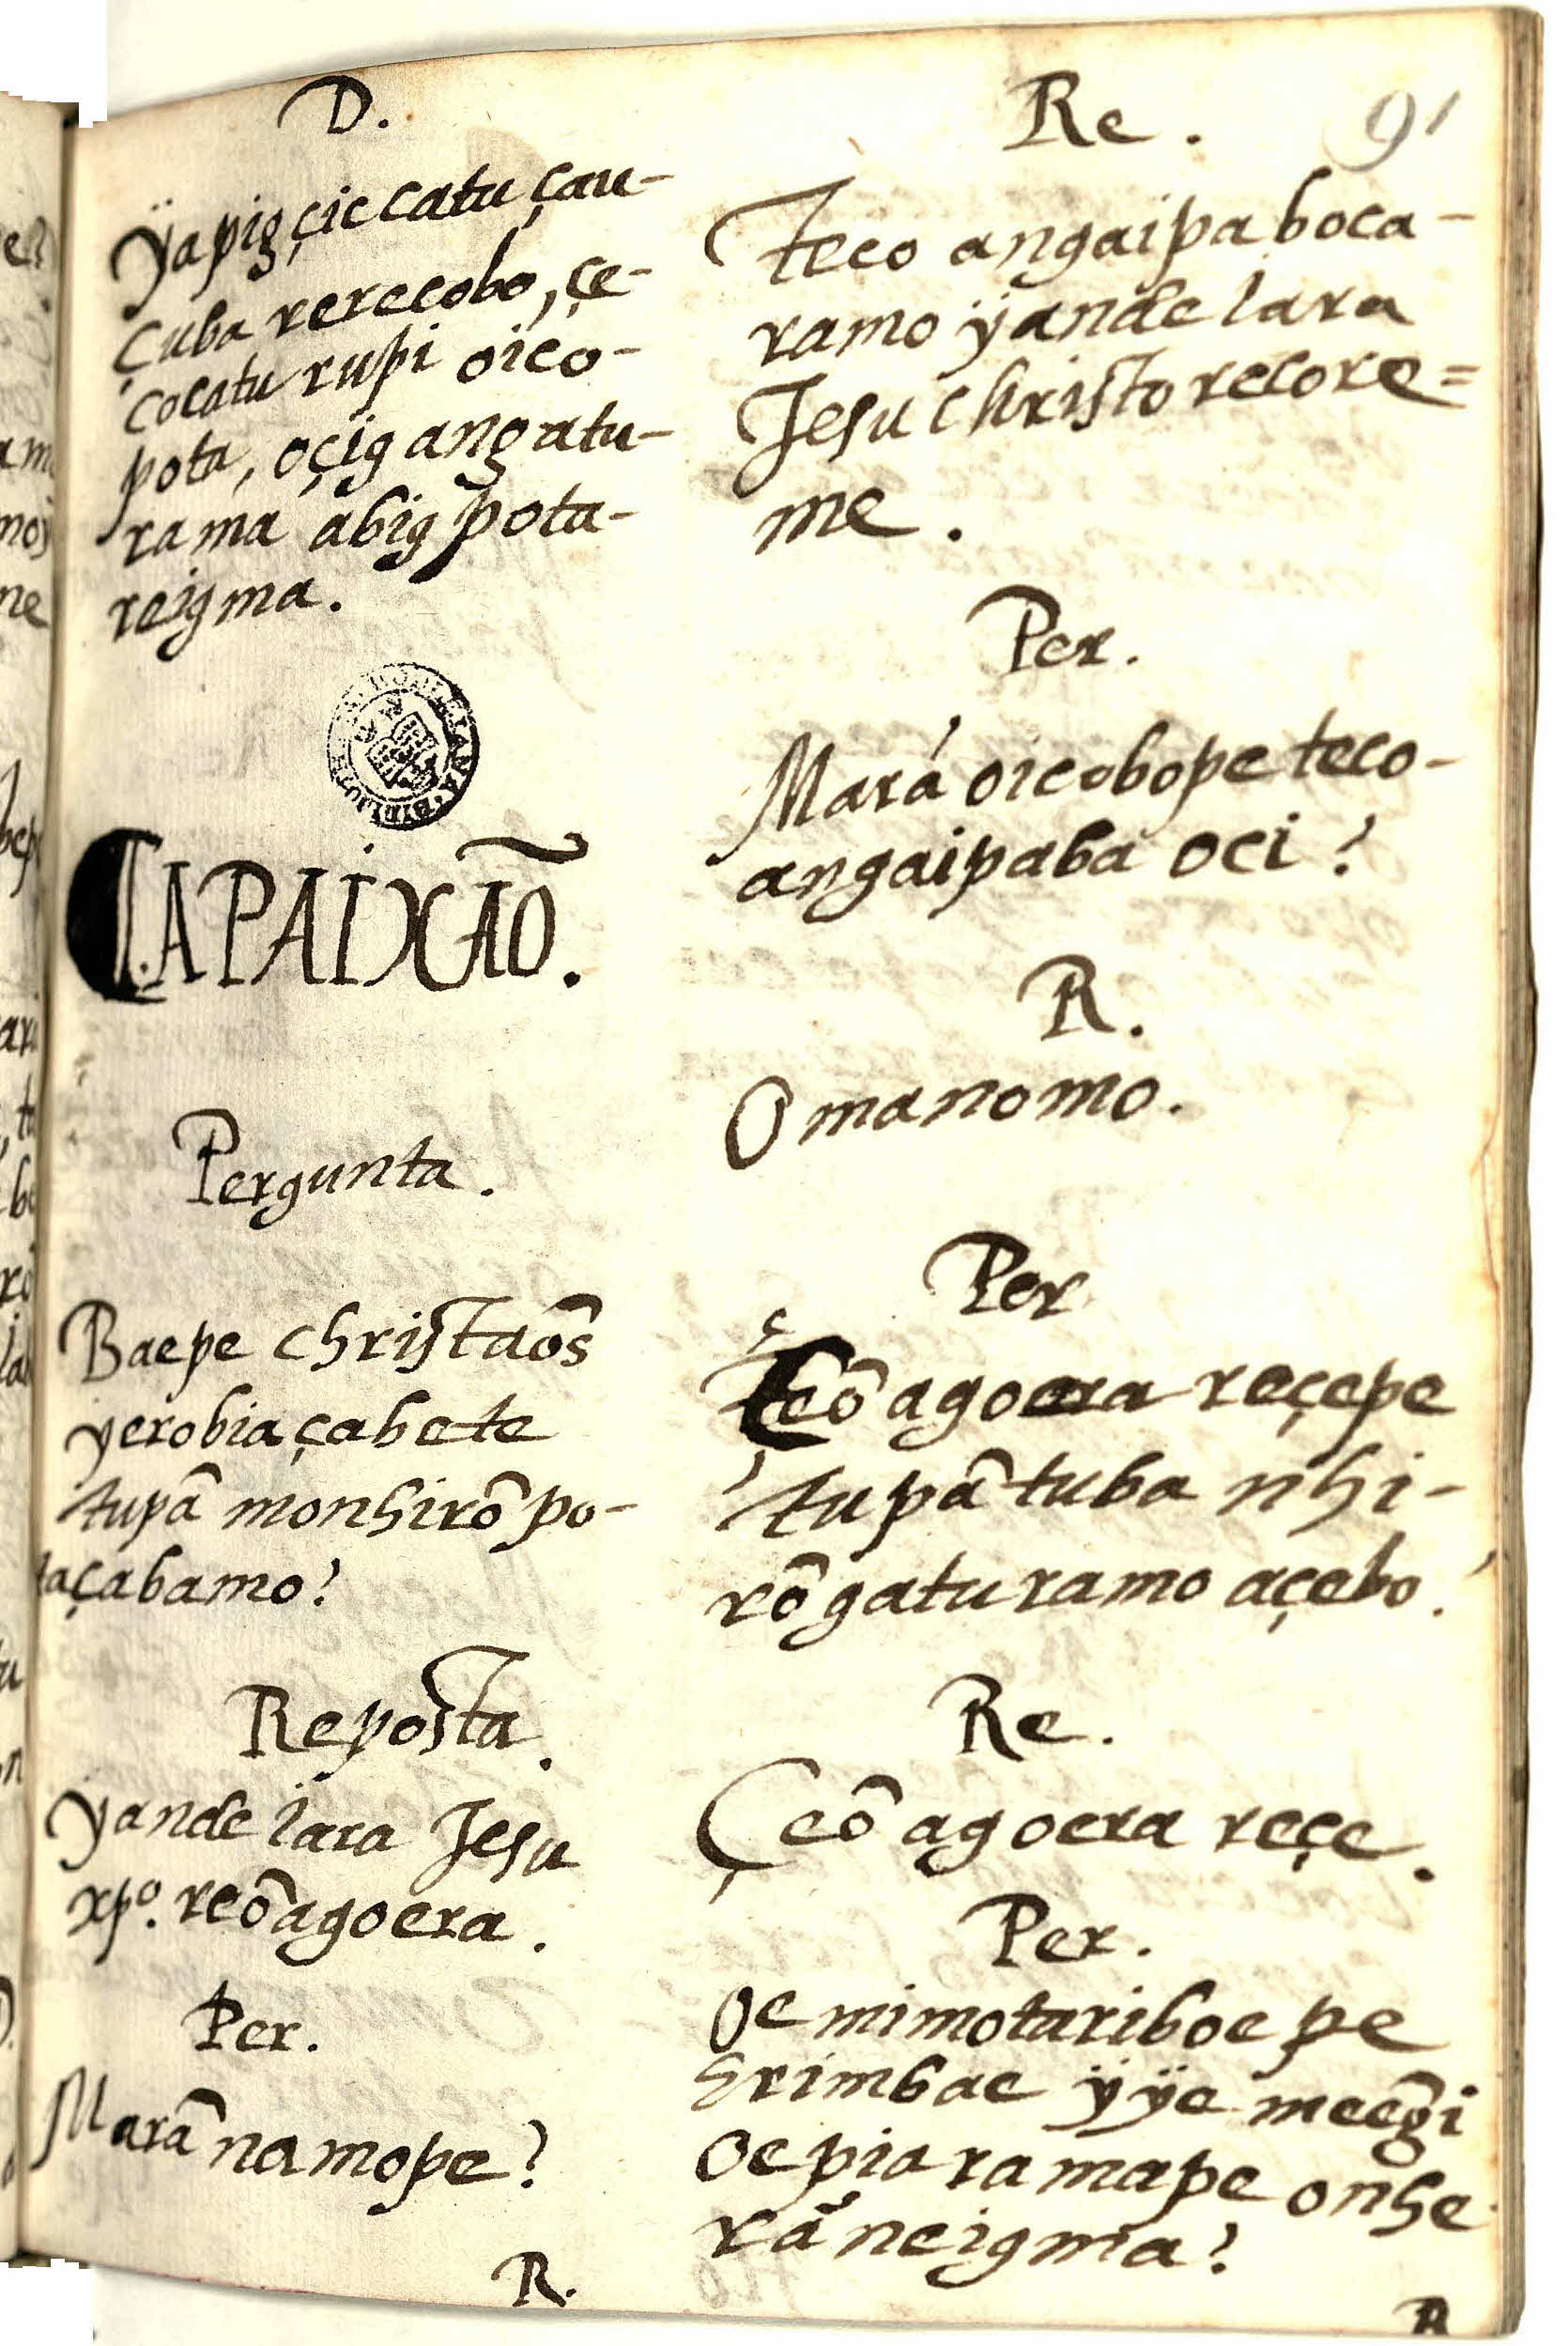 D.
Ÿapig çic catu çau-
çuba rerecobo, çe-
cocatu rupi oico-
pota, oçig angatu-
rama abig pota-
reigma.
DA PAIXÃO.
Pergunta.
Baepe christaõs
yerobia çabete
tupã monhirõ po-
taçabamo?
Reposta.
Yande Iara Jesu
xpo. reõagoera.
Per.
Marã namope?
R.
Re.
91
Teco angaipaboca-
ramo ÿande Iara
Jesu christo recore=
me.
Per.
Mará oicobope teco-
angaipaba oci?
R.
Omanomo.
Per
Çeõagoera reçepe
tupã tuba nhi-
rõgaturamo açebo?
Re.
Çeõagoera reçe.
Per.
Oemimotariboe pe
erimbae ÿÿe meegi
Oepiaramape onhe
rãneigma?
R